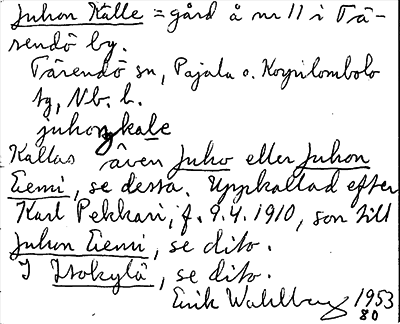 Juhon Kalle = gård å nr 11 i Tä-
rendö by.
Tärendö sn, Pajala o. Korpilombolo
tg, Nb. l.
juhoŋkalle
Kallas även Juho eller Juhon
Eemi, se dessa. Uppkallad efter
Karl Pekkari, f. 9.4.1910, son till
Juhon Eemi, se dito.
I Isokylä, se dito.
Erik Wahlberg 1953
80